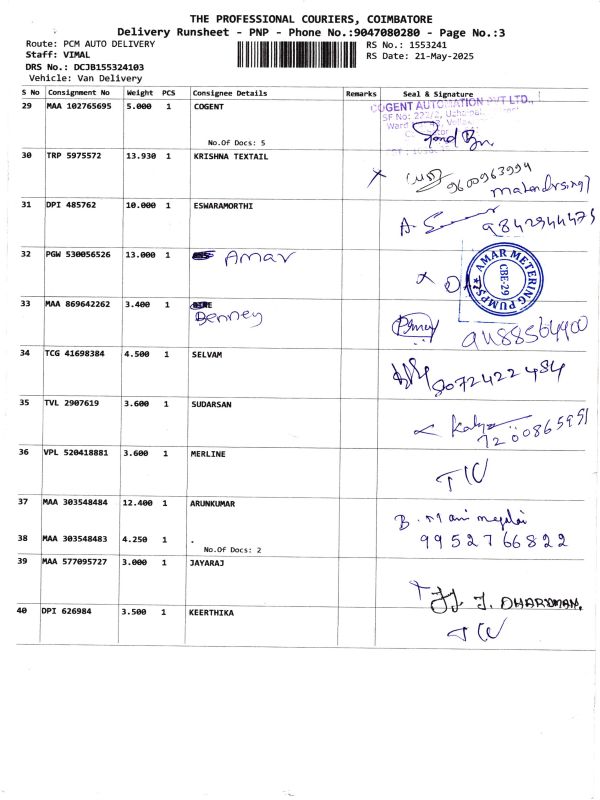 THE PROFESSIONAL COURIERS, COIMBATORE
Delivery Runsheet - PNP - Phone No.:9047080280 - Page No.:3
Route: PCM AUTO DELIVERY RS No.: 1553241
Staff: VIMAL RS Date: 21-May-2025
DRS No.: DCJB155324103
Vehicle: Van Delivery
S No Consignment No Weight PCS Consignee Details Remarks Seal & Signature
29 MAA 102765695 5.000 1 COGENT COGENT AUTOMATION PVT LTD.,
No.Of Docs: 5
30 TRP 5975572 13.930 1 KRISHNA TEXTAIL
9600963994
31 DPI 485762 10.000 1 ESWARAMORTHI
9842944475
32 PGW 530056526 13.000 1 Amar
AMAR METERING PUMPS CBE-29
33 MAA 869642262 3.400 1 Denney
9488564400
34 TCG 41698384 4.500 1 SELVAM
8072422484
35 TVL 2907619 3.600 1 SUDARSAN
7200865951
36 VPL 520418881 3.600 1 MERLINE
37 MAA 303548484 12.400 1 ARUNKUMAR
38 MAA 303548483 4.250 1 .
9952766822
No.Of Docs: 2
39 MAA 577095727 3.000 1 JAYARAJ
40 DPI 626984 3.500 1 KEERTHIKA